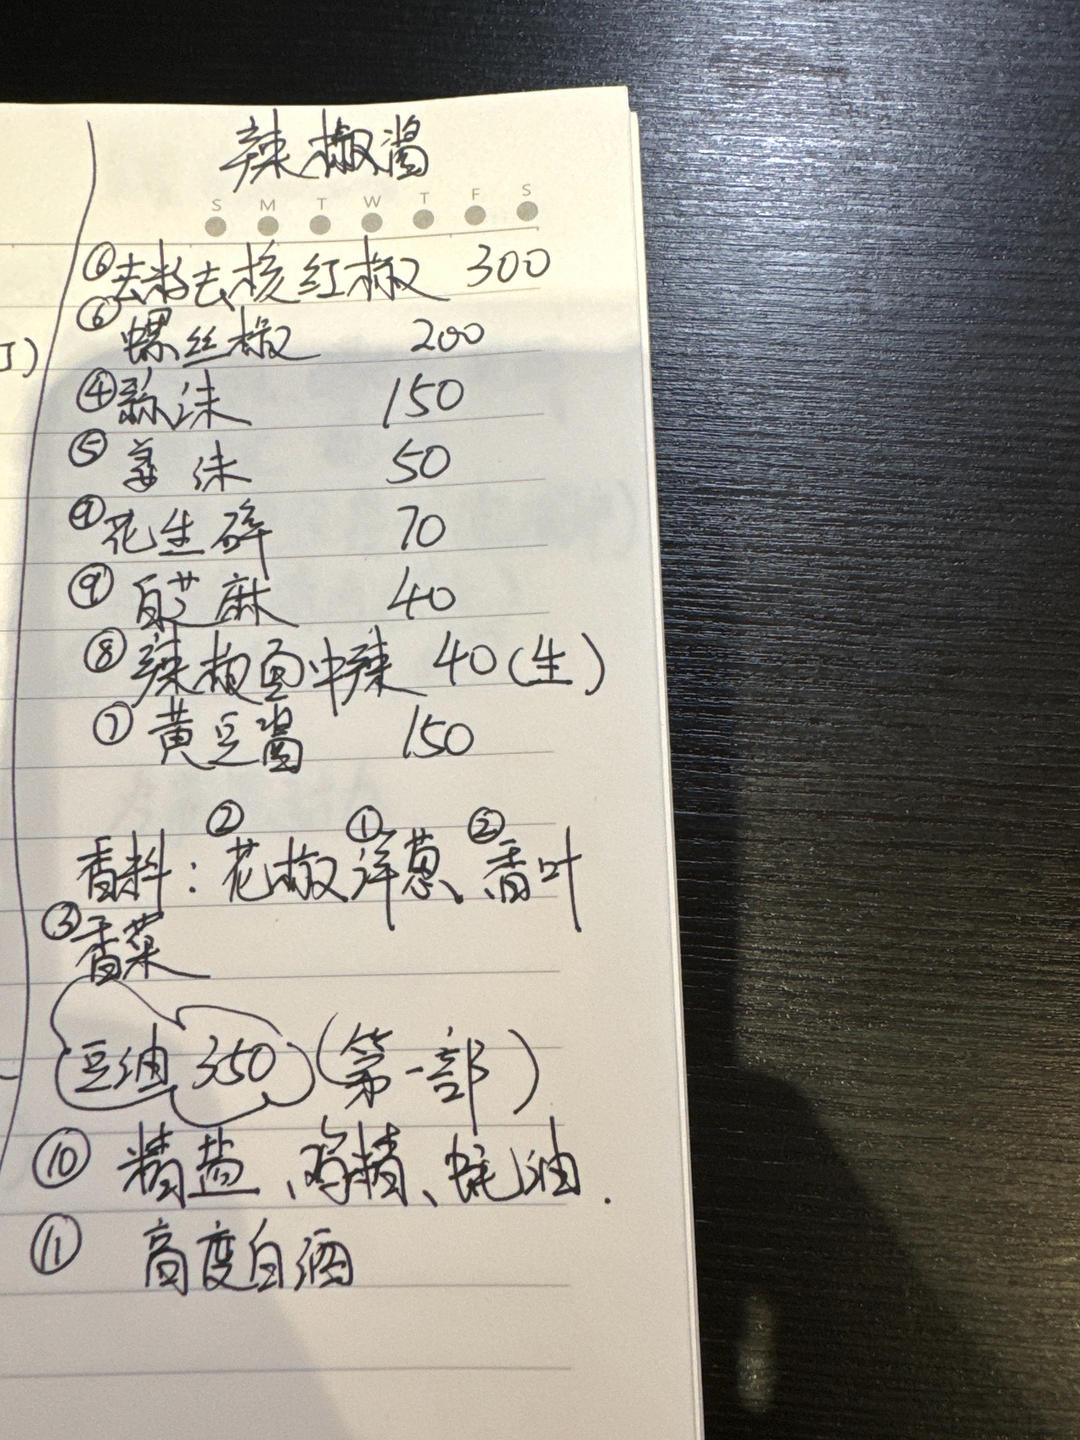 辣椒酱
S M T W T F S
⑥去籽去核红椒 300
⑥螺丝椒 200
④蒜沫 150
⑤姜沫 50
⑨花生碎 70
⑨白芝麻 40
⑧辣椒面中辣 40(生)
⑦黄豆酱 150
② ① ②
香料:花椒、洋葱、香叶
③香菜
豆油 350 (第一部)
⑩ 精盐、鸡精、蚝油.
⑪ 高度白酒